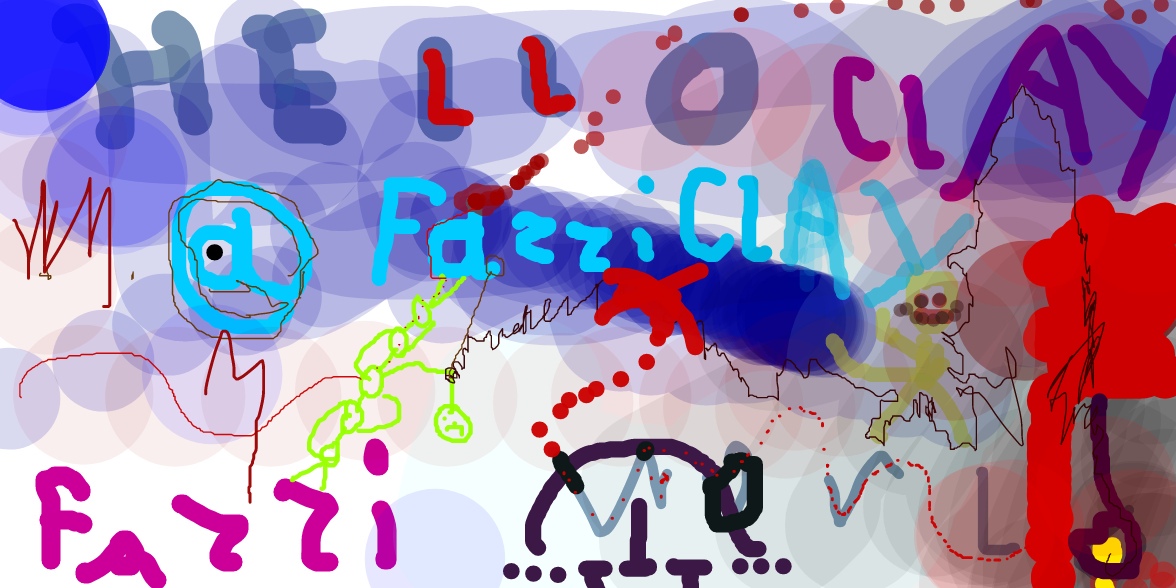 HELLO CLAY
@FazziCLAY
Fazzi